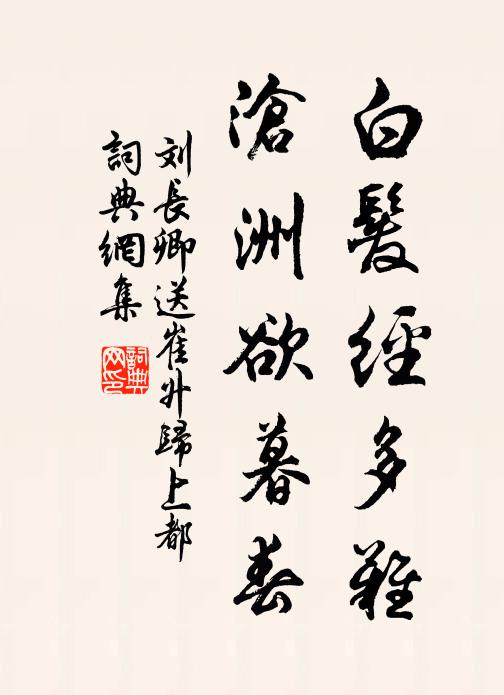 白髮經多難
滄洲欲暮春
刘長卿送崔升歸上都
詞典網集
詞典网印